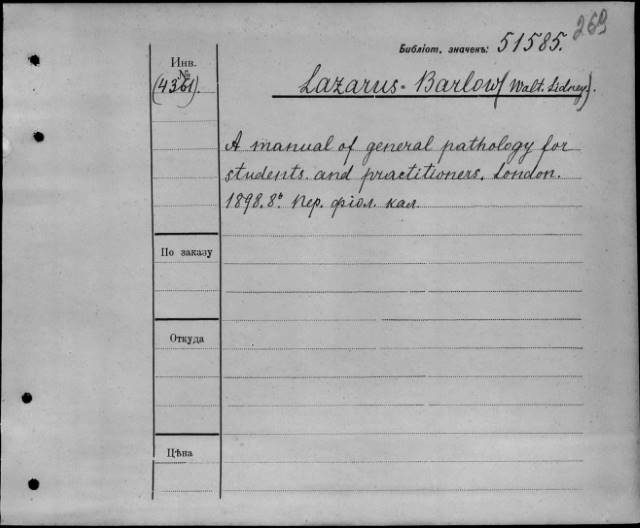 269
Библіот. значекъ: 51585.
Инв.
№
(4361).
Lazarus-Barlow (Walt. Sidney).
A manual of general pathology for
students and practitioners. London.
1898. 8º Пер. фіол. кал.
По заказу
Откуда
Цѣна